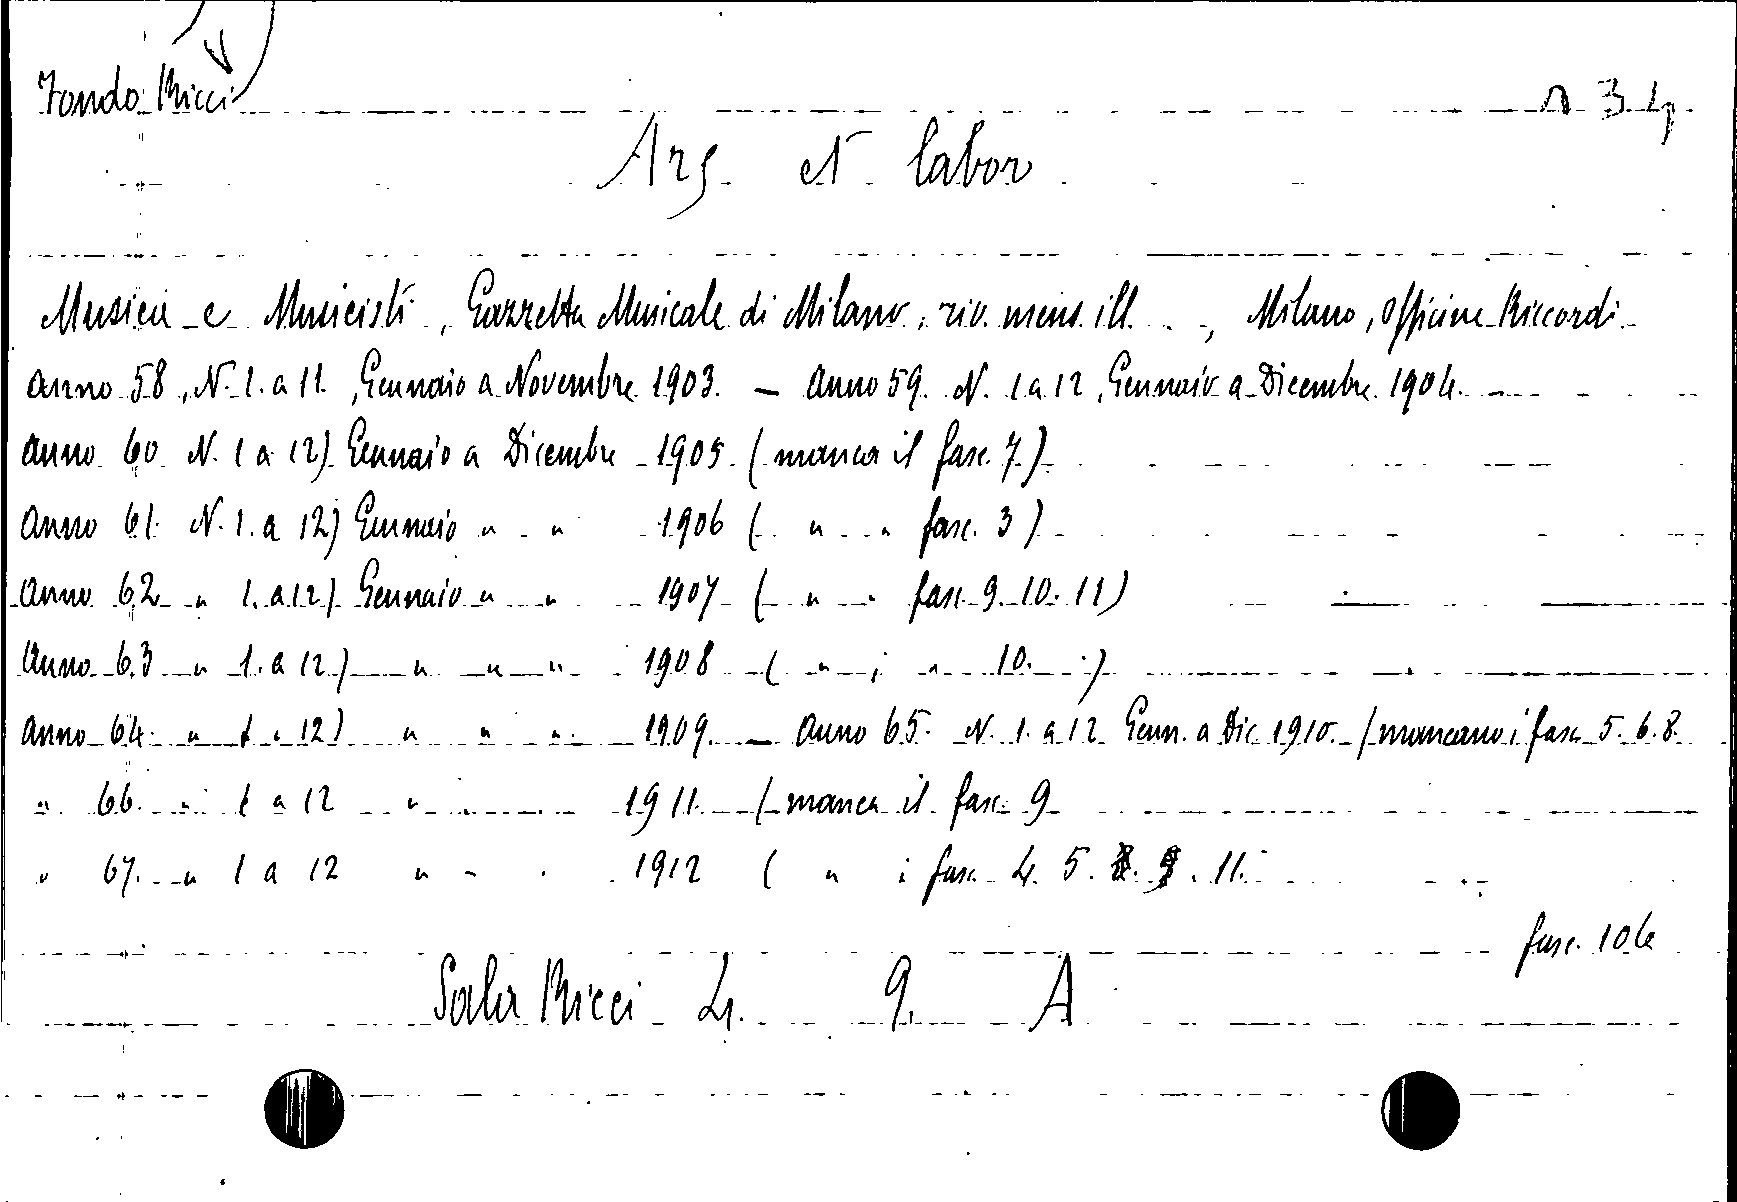 Fondo Ricci n 34
Ars et labor
Musica e Musicisti, Gazzetta Musicale di Milano, riv. mens. ill. . , Milano, Officine Riccordi
Anno 58, N. 1. a 11. , Gennaio a Novembre 1903. — Anno 59. N. 1 a 12, Gennaio a Dicembre 1904.
Anno 60 N. 1 a 12) Gennaio a Dicembre 1905 (manca il fasc. 7)
Anno 61. N. 1. a 12) Gennaio " " 1906 ( " " fasc. 3)
Anno 62 " 1. a 12) Gennaio " " 1907 ( " " fasc 9. 10. 11)
Anno 63 " 1. a 12) " " " 1908 ( " " 10. )
Anno 64. " 1 a 12) " " " 1909. — Anno 65. N. 1. a 12 Genn. a Dic 1910. (mancano i fasc 5. 6. 8.
" 66. " 1 a 12 " " 1911. (manca il fasc. 9
" 67. " 1 a 12 " " 1912 ( " i fasc. 4. 5. 8. 9. 11.
fasc. 106
Sala Ricci 4. 9. A